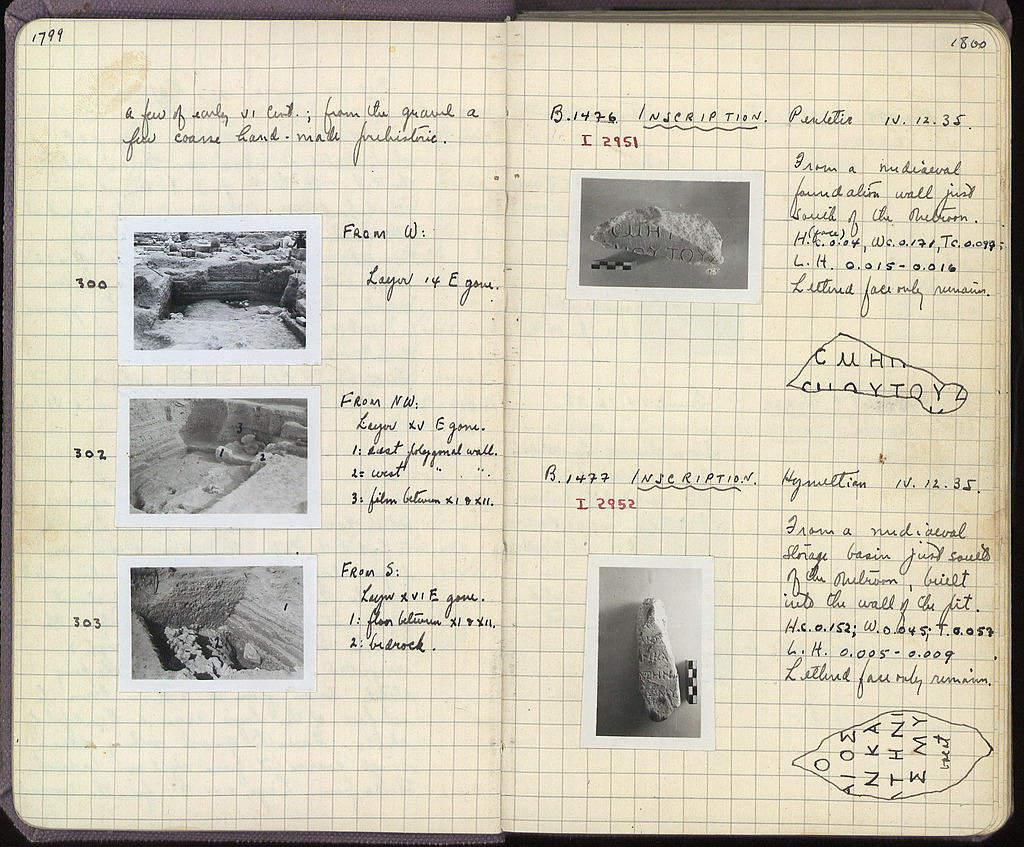 1799
a few of early VI Cent.; from the gravel a
few coarse hand-made prehistoric.
300
FROM W:
Layer 14 E gone.
302
FROM NW:
Layer XV E gone.
1: east polygonal wall.
2: west " ".
3: between XI & XII.
3
1
2
303
FROM S:
Layer XVI E gone.
1: floor between XI & XII.
2: bedrock.
1
1800
B.1476 INSCRIPTION. Pentelic IV.12.35.
I 2951
From a mediaeval
foundation wall just
south of the Metroon.
(face)
H.c.0.04, W.c.0.171, T.c.0.097;
L.H. 0.015-0.016
Lettered face only remains.
CΩHΠ
CΩΟΥΤΟΥΣ
B.1477 INSCRIPTION. Hymettian IV.12.35.
I 2952
From a mediaeval
storage basin just south
of the Metroon, built
into the wall of the pit.
H.c.0.152; W.0.045; T.0.057
L.H. 0.005-0.009
Lettered face only remains.
Ο
ΑΙΟΣ
ΝΚΑ
ΤΗΝΙ
ΣΜΥ
vacat